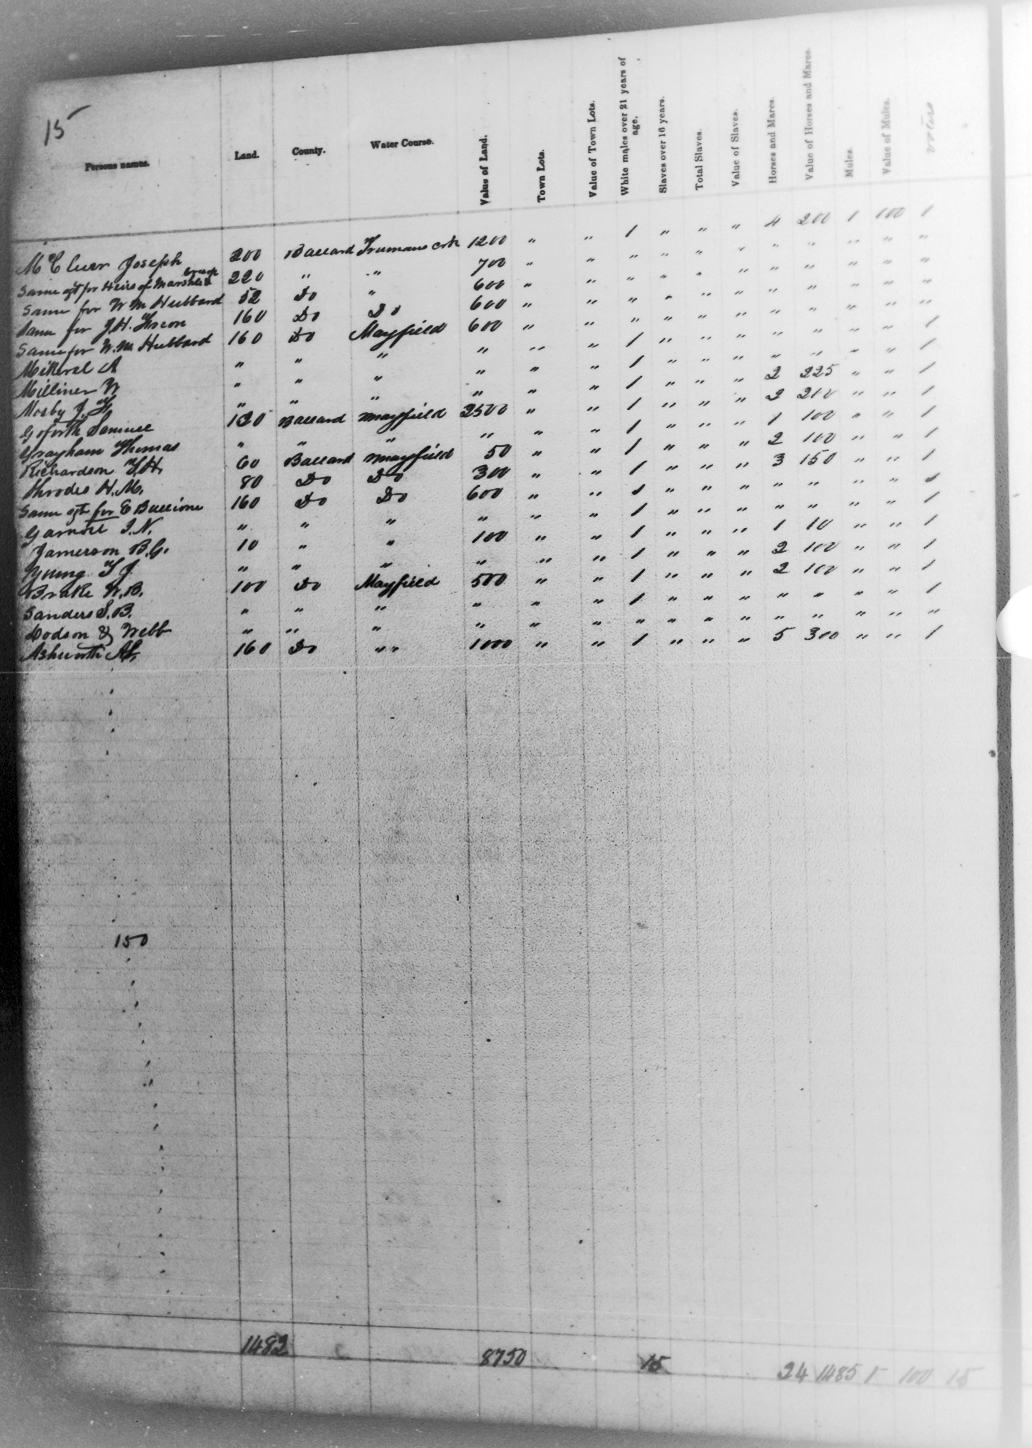 15
Persons names. Land. County. Water Course. Value of Land. Town Lots. Value of Town Lots. White males over 21 years of age. Slaves over 16 years. Total Slaves. Value of Slaves. Horses and Mares. Value of Horses and Mares. Mules. Value of Mules. voters
McClure Joseph 200 Ballard Trumans crk 1200 " " 1 " " " 4 200 1 100 1
Same agt for Heirs of Marshall 220 " " 700 " " " " " " " " " " "
Same for W M Hubbard 52 Do " 600 " " " " " " " " " " "
Same for J.H. 160 Do Do 600 " " " " " " " " " " "
Same for W.M. Hubbard 160 Do Mayfield 600 " " " " " " " " " " "
A " " " " " " 1 " " " " " " " 1
Milliner W " " " " " " 1 " " " 2 225 " " 1
Mosby J. " " " " " " 1 " " " 2 210 " " 1
Goforth Samuel 120 Ballard Mayfield 2500 " " 1 " " " 1 100 " " 1
Grayham Thomas " " " " " " 1 " " " 2 100 " " 1
Richardson T.H. 60 Ballard Mayfield 50 " " 1 " " " 3 150 " " 1
Rhrodes H.M. 80 Do Do 300 " " 1 " " " " " " " 1
Same agt for E 160 Do Do 600 " "
Garnett J.N. " " " " " " 1 " " " 1 10 " " 1
Jamerson B.G. 10 " " 100 " " 1 " " " 2 100 " " 1
Young T J " " " " " " 1 " " " 2 100 " " 1
Brake W.B. 100 Do Mayfield 500 " " 1 " " " " " " " 1
Sanders S.B. " " " " " " 1 " " " " " " "
Dodson & Webb " " " " " " " " " " " " " " "
Ashworth 160 Do " " 1000 " " 1 " " " 5 300 " " 1
150
1482 8750 15 24 1485 1 100 15